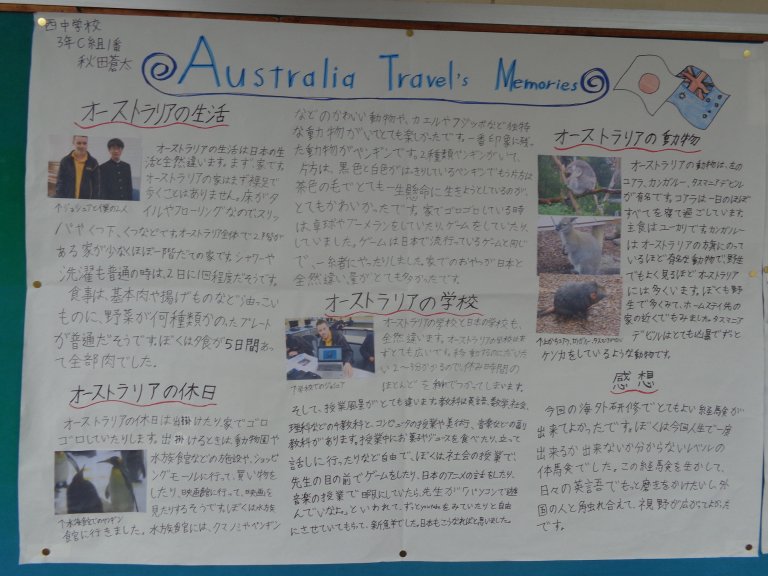 西中学校
3年C組1番
秋田蒼太
Australia Travel's Memories
オーストラリアの生活
オーストラリアの生活は日本の生
活と全然違います。まず家です。
オーストラリアの家はまず裸足で
歩くことはありません。床がタ
イルやフローリングなのでスリッ
↑ジョシュアと僕の2人
パやくつ下、くつなどです。オーストラリア全体で2階が
ある家が少なくほぼ一階だての家です。シャワーや
洗濯も普通の時は、2日に1回程度だそうです。
食事は、基本肉や揚げものなど油っこい
ものに、野菜が何種類かのったプレート
が普通だそうです。ぼくは夕食が5日間あっ
て全部肉でした。
オーストラリアの休日
オーストラリアの休日は出掛けたり、家でゴロ
ゴロしていたりします。出掛けるときは、動物園や
水族館などの施設や、ショッピ
ングモールに行って、買い物を
したり、映画館に行って、映画を
見たりするそうです。ぼくは水族
↑水族館でのペンギン
館に行きました。水族館には、クマノミやペンギン
などのかわいい動物や、カエルやアジッポなど独特
な動物がいてとても楽しかったです。一番印象に残っ
た動物がペンギンです。2種類ペンギンがいて、
片方は、黒色と白色がはっきりしているペンギンで、もう片方は
茶色の毛でとても一生懸命に生きようとしているのが、
とてもかわいかったです。家でゴロゴロしている時
は、卓球やブーメランをしていたり、ゲームをしていたり、
していました。ゲームは日本で流行っているゲームと同じ
で、一緒にやったりしました。家でのおやつが日本と
全然違い量がとても多かったです。
オーストラリアの学校
オーストラリアの学校と日本の学校も、
全然違います。オーストラリアの学校はま
ずとても広いです。移動するのにだいた
い2〜3分かかるので休み時間の
ほとんどを移動でつかってしまいます。
↑学校でのジョシュア
そして、授業風景がとても違います。教科は英語、数学、社会、
理科などの教科と、コンピュータの授業や美術、音楽などの副
教科があります。授業中にお菓子やジュースを食べたり、立って
話しに行ったりなど自由で、ぼくは社会の授業で、
先生の目の前でゲームをしたり、日本のアニメの話をしたり、
音楽の授業で暇にしていたら、先生が「パソコンで遊
んでいなよ。」といわれて、ずっとyoutubeをみていたりと自由
にさせていてもらって、新鮮でした。日本もこうなればと思いました。
オーストラリアの動物
オーストラリアの動物は、左の
コアラ、カンガルー、タスマニアデビル
が有名です。コアラは一日のほぼ
すべてを寝て過ごしています。
主食はユーカリです。カンガルー
はオーストラリアの太旗にのって
いるほど有名な動物で、野生
でもよく見るほどオーストラリア
には多くいます。ぼくも野
生で多くみて、ホームステイ先の
家の近くでもみました。タスマニア
デビルはとても凶暴でずっと
ケンカをしているような動物です。
感想
今回の海外研修でとてもよい経験が
出来てよかったです。ぼくは今回人生で一度
出来るか出来ないか分からないレベルの
体験でした。この経験を生かして、
日々の英語でもっと磨きをかけたいし、外
国の人と触れ合えて、視野が広がってよかった
です。